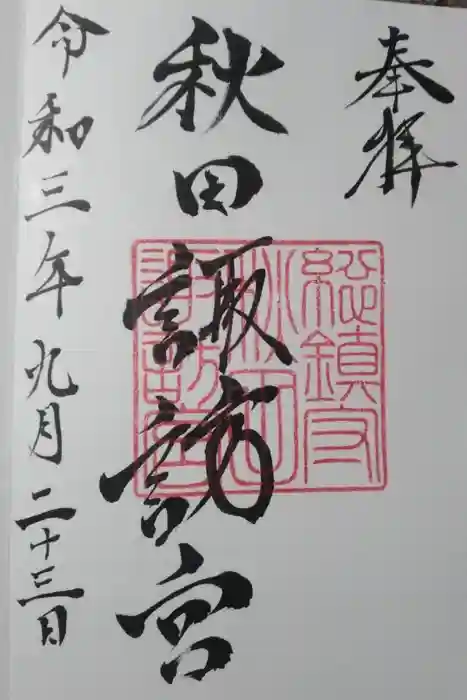 奉拝
総鎮守
秋田
諏訪宮
秋田諏訪宮
令和三年九月二十三日